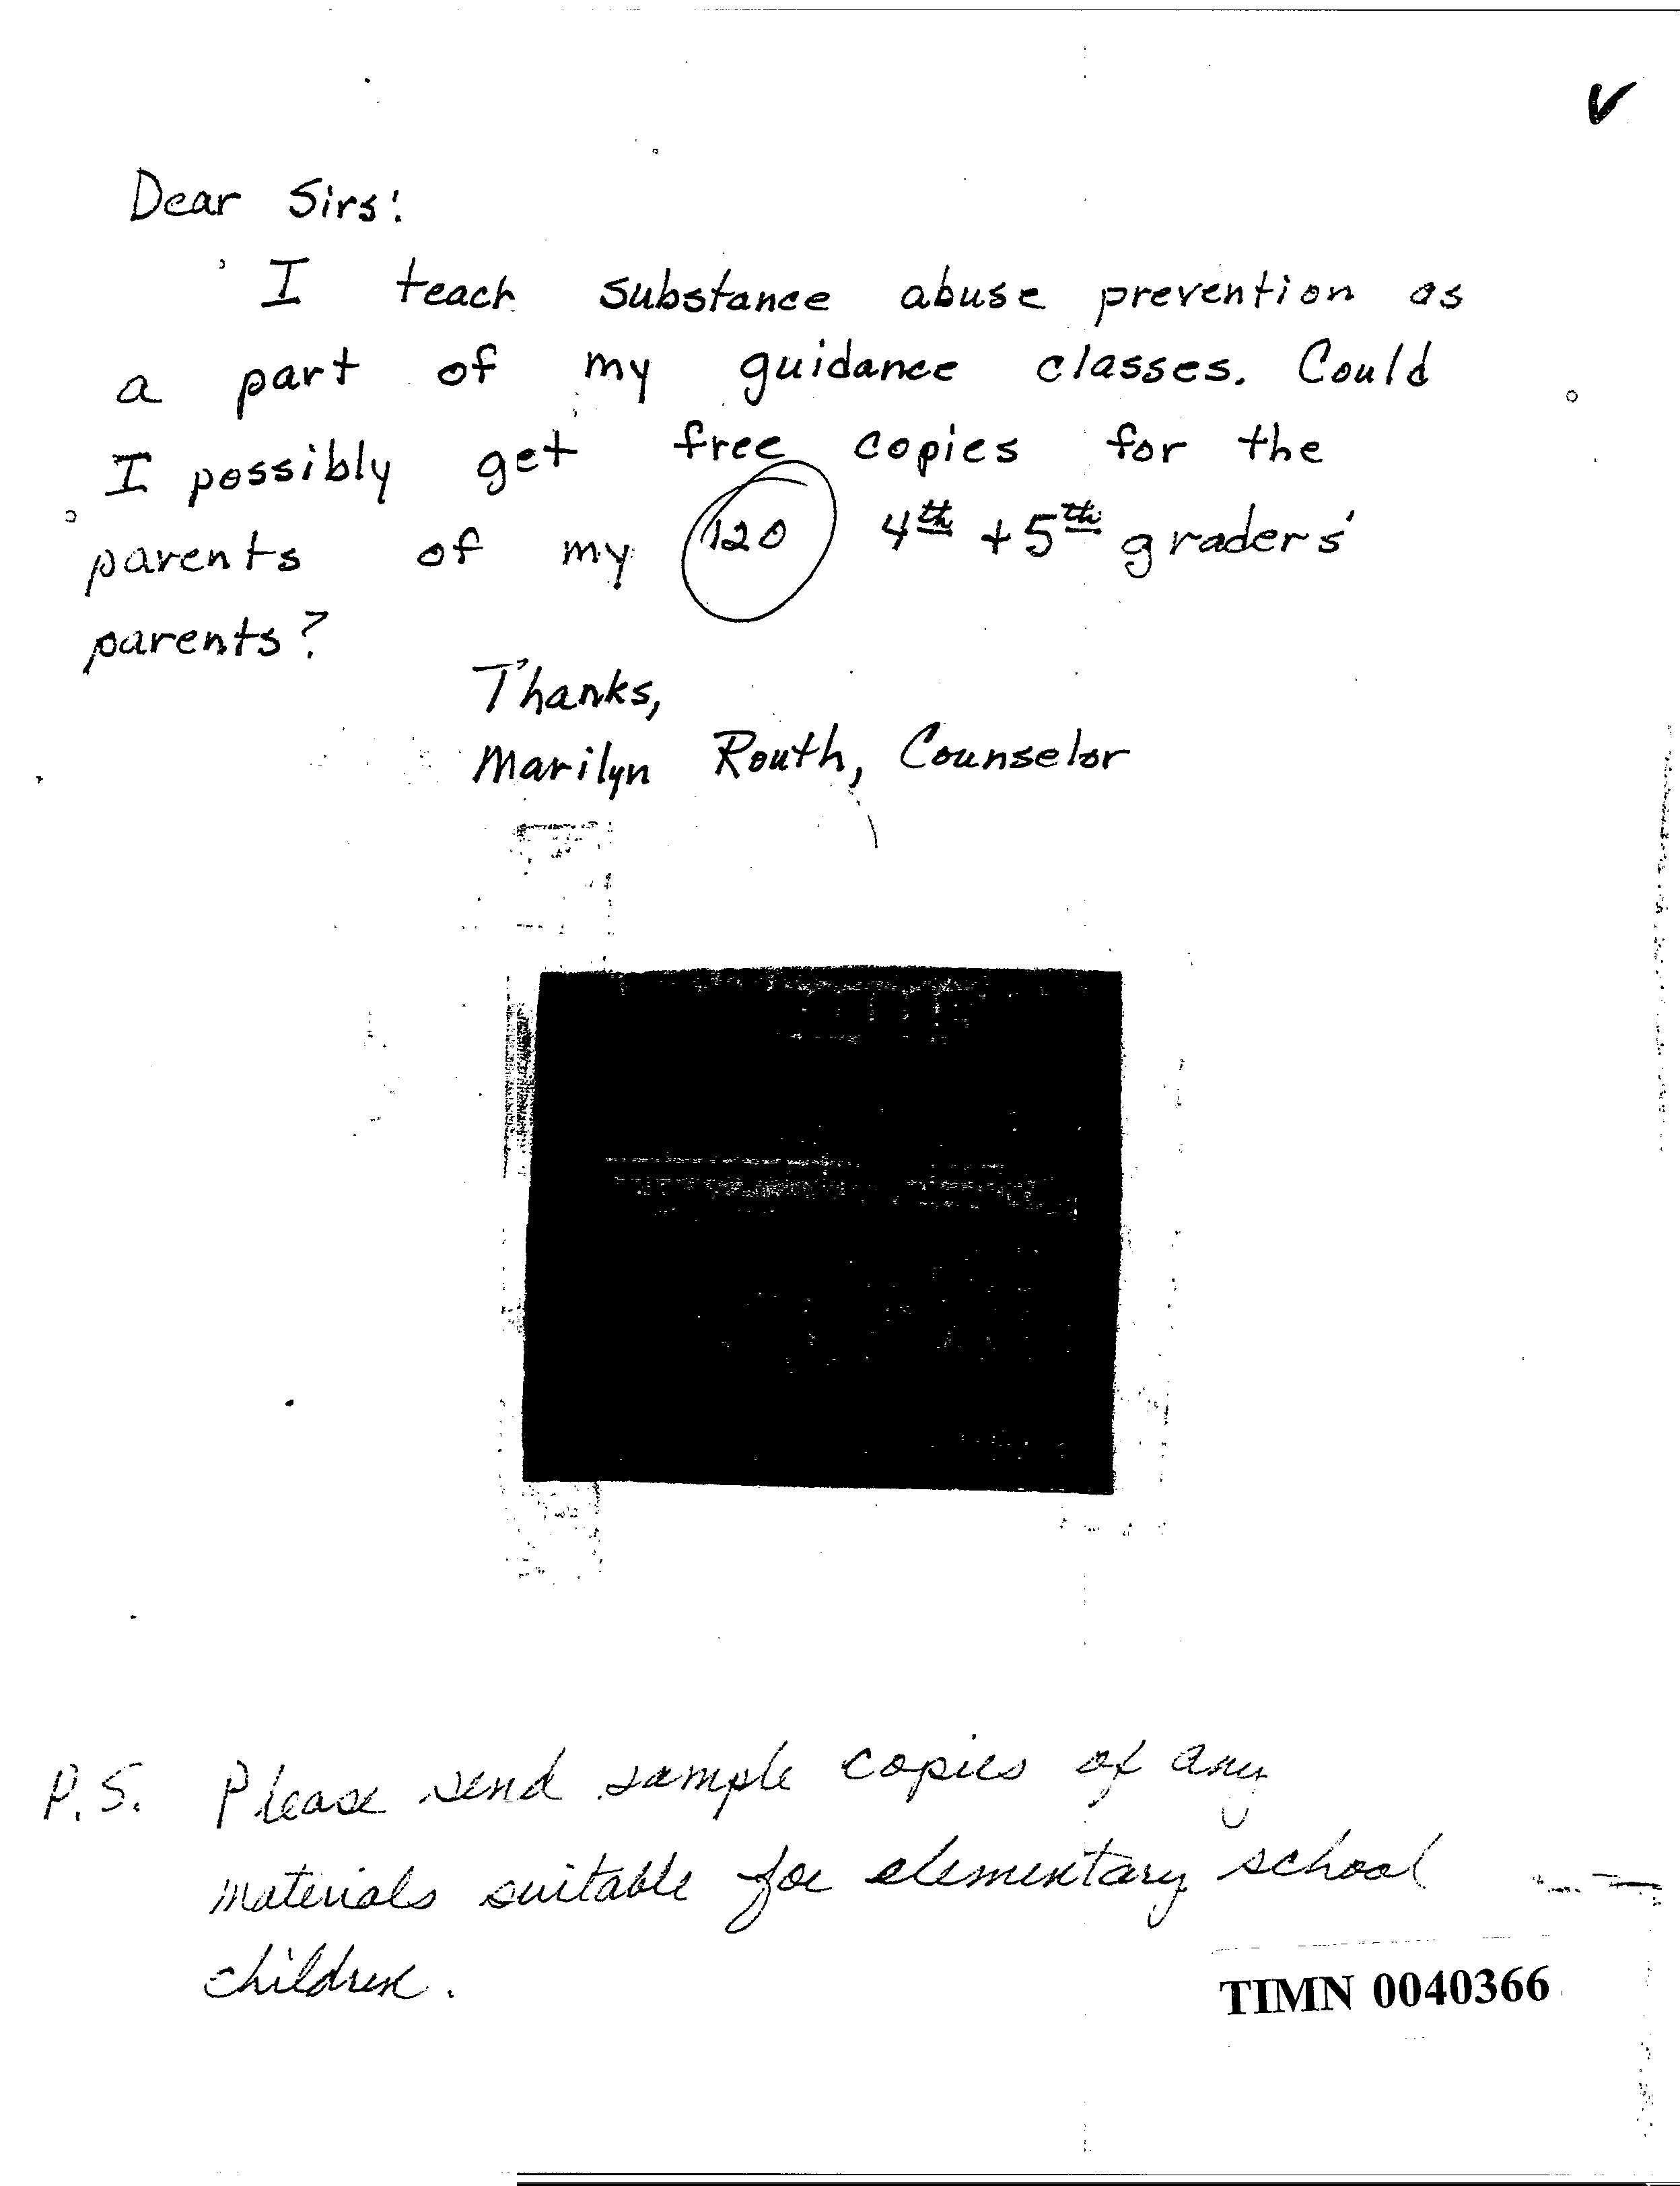 Dear Sirs:
I teach substance abuse prevention as
a part of my guidance classes. Could
I possibly get free copies for the
parents of my 120 4th + 5th graders'
parents?
Thanks,
Marilyn Routh, Counselor
P.S. Please send sample copies of any
materials suitable for elementary school
children.
TIMN 0040366